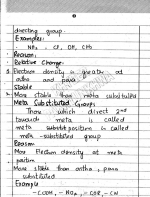 directing group.
Examples:
- NH₂, - Cl, OH, CH₃
Reason:
Relative Charge:
1. Electron density is greater at
ortho and para
Stable
2. More stable than meta substituted
Meta Substituted Groups
Those which direct 2nd
towards meta is called
meta substit position is called
meta-substituted group
Reason
More Electron density at meta
position
More stable than ortho, para
substituted
Example
-COOH, -NO₂, -COR, -CN